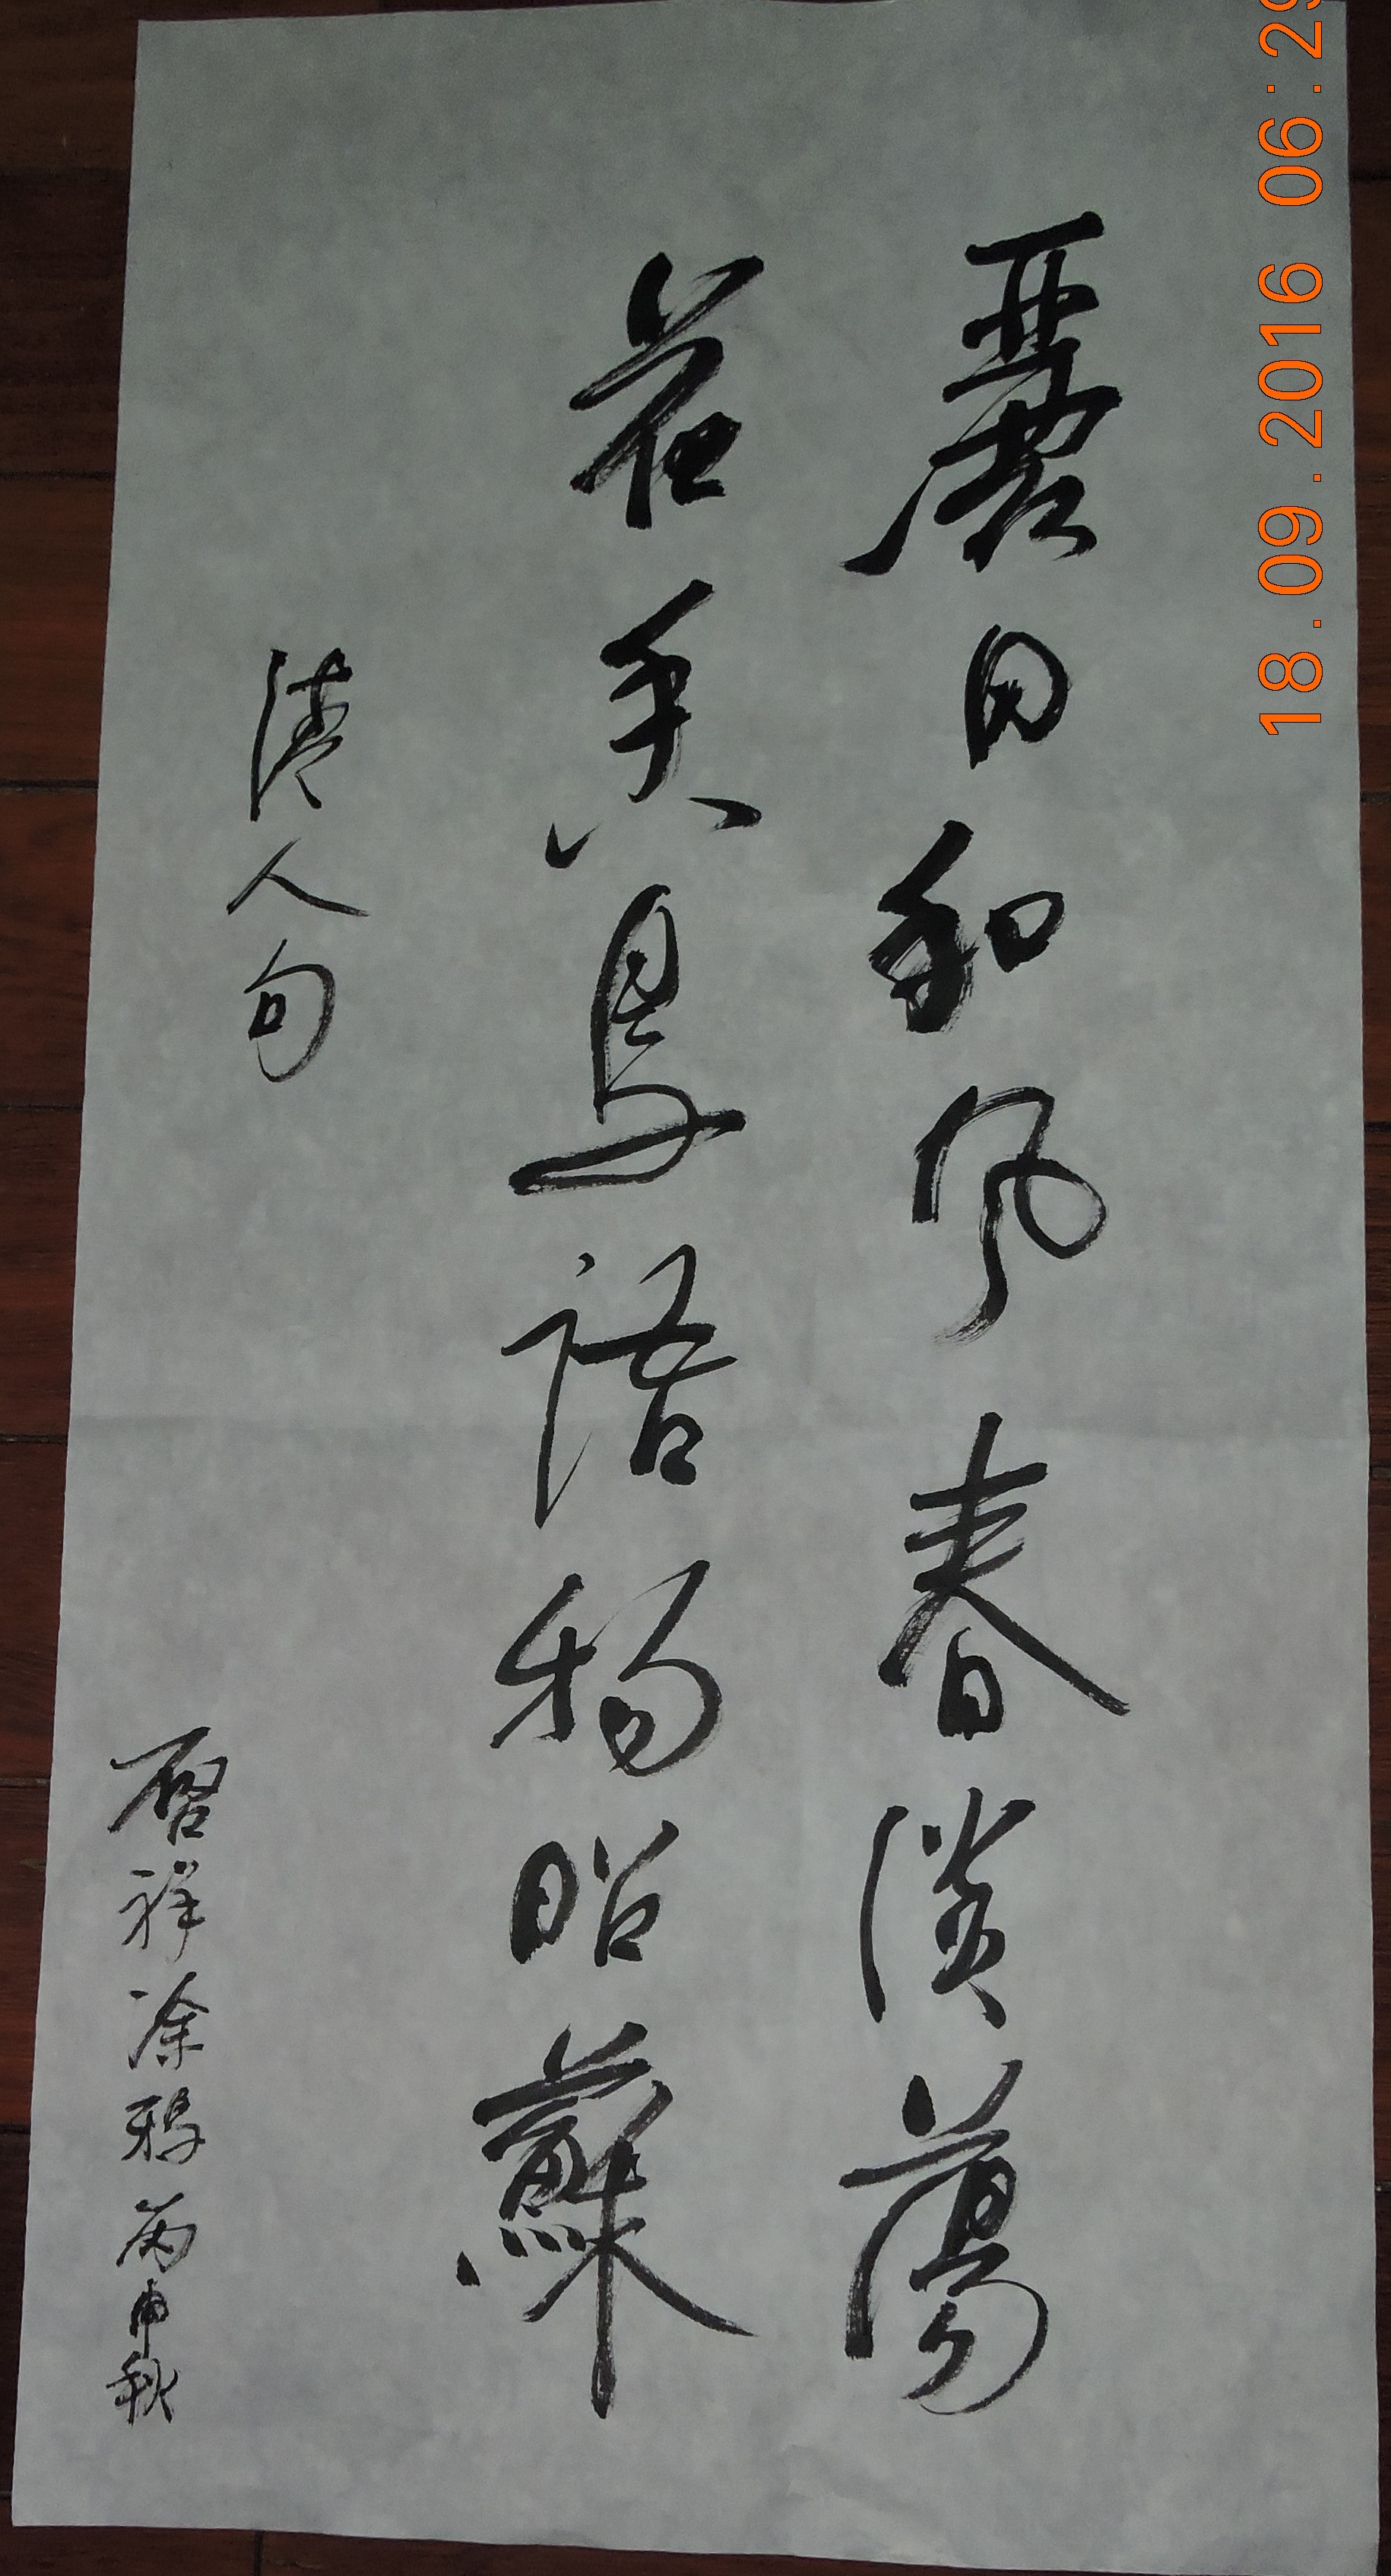 麗日和风春淡蕩
花香鳥語物昭蘇
清人句
啓祥涂鴉丙申秋
18.09.2016 06:29